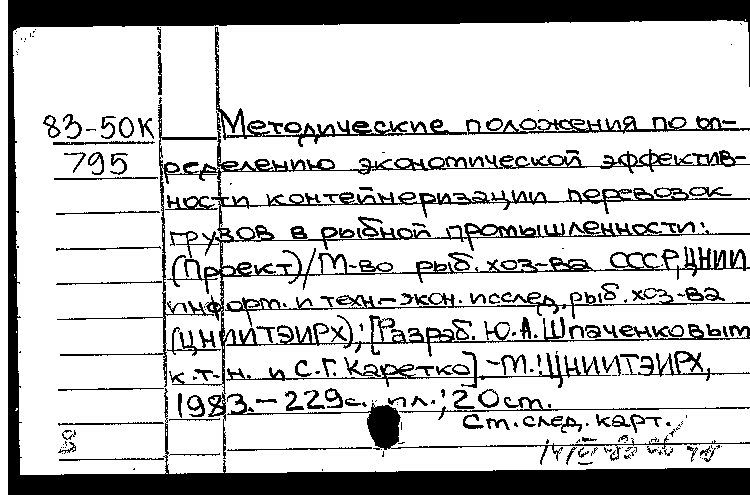 83-50К Методические положения по оп-
795 ределению экономической эффектив-
ности контейнеризации перевозок
грузов в рыбной промышленности:
(Проект)/М-во рыб. хоз-ва СССР, ЦНИИ
информ. и техн-экон. исслед. рыб. хоз-ва
(ЦНИИТЭИРХ); [Разраб. Ю.А. Шпаченковым
к.т.н. и С.Г. Каретко] -М.: ЦНИИТЭИРХ,
1983.-229с., ил.; 20см.
См. след. карт.
В